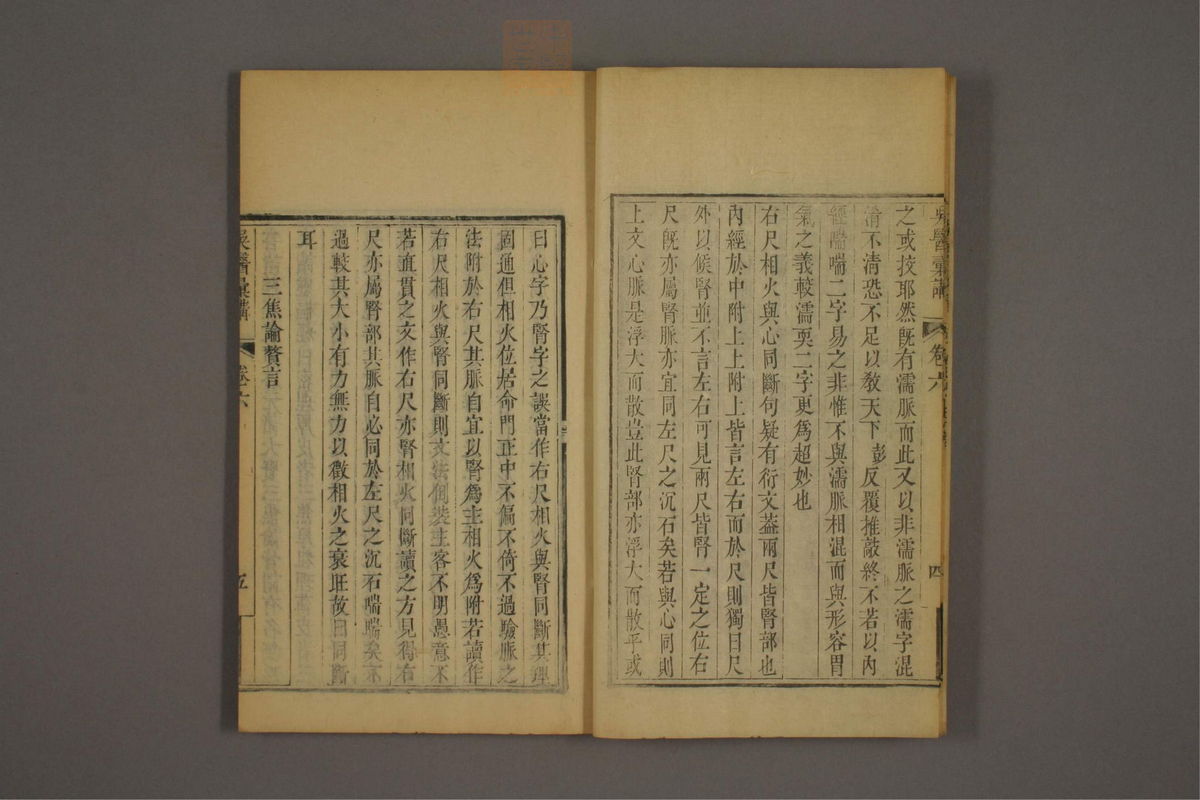 吳醫彙講
卷六
四
之或按耶然既有濡脈而此又以非濡脈之濡字混
淆不清恐不足以敎天下彭反覆推敲終不若以內
經喘喘二字易之非惟不與濡脈相混而與形容胃
氣之義較濡耎二字更爲超妙也
右尺相火與心同斷句疑有衍文葢兩尺皆腎部也
內經於中附上上附上皆言左右而於尺則獨曰尺
外以候腎並不言左右可見兩尺皆腎一定之位右
尺既亦屬腎脈亦宜同左尺之沉石矣若與心同則
上文心脈是浮大而散豈此腎部亦浮大而散乎或
曰心字乃腎字之誤當作右尺相火與腎同斷其理
固通但相火位居命門正中不偏不倚不過驗脈之
法附於右尺其脈自宜以腎爲主相火爲附若讀作
右尺相火與腎同斷則文法倒裝主客不明愚意不
若直貫之文作右尺亦腎相火同斷讀之方見獨右
尺亦屬腎部其脈自必同於左尺之沉石喘喘矣不
過較其大小有力無力以徵相火之衰旺故曰同斷
耳
三焦論贅言
吳醫彙講
卷六
五